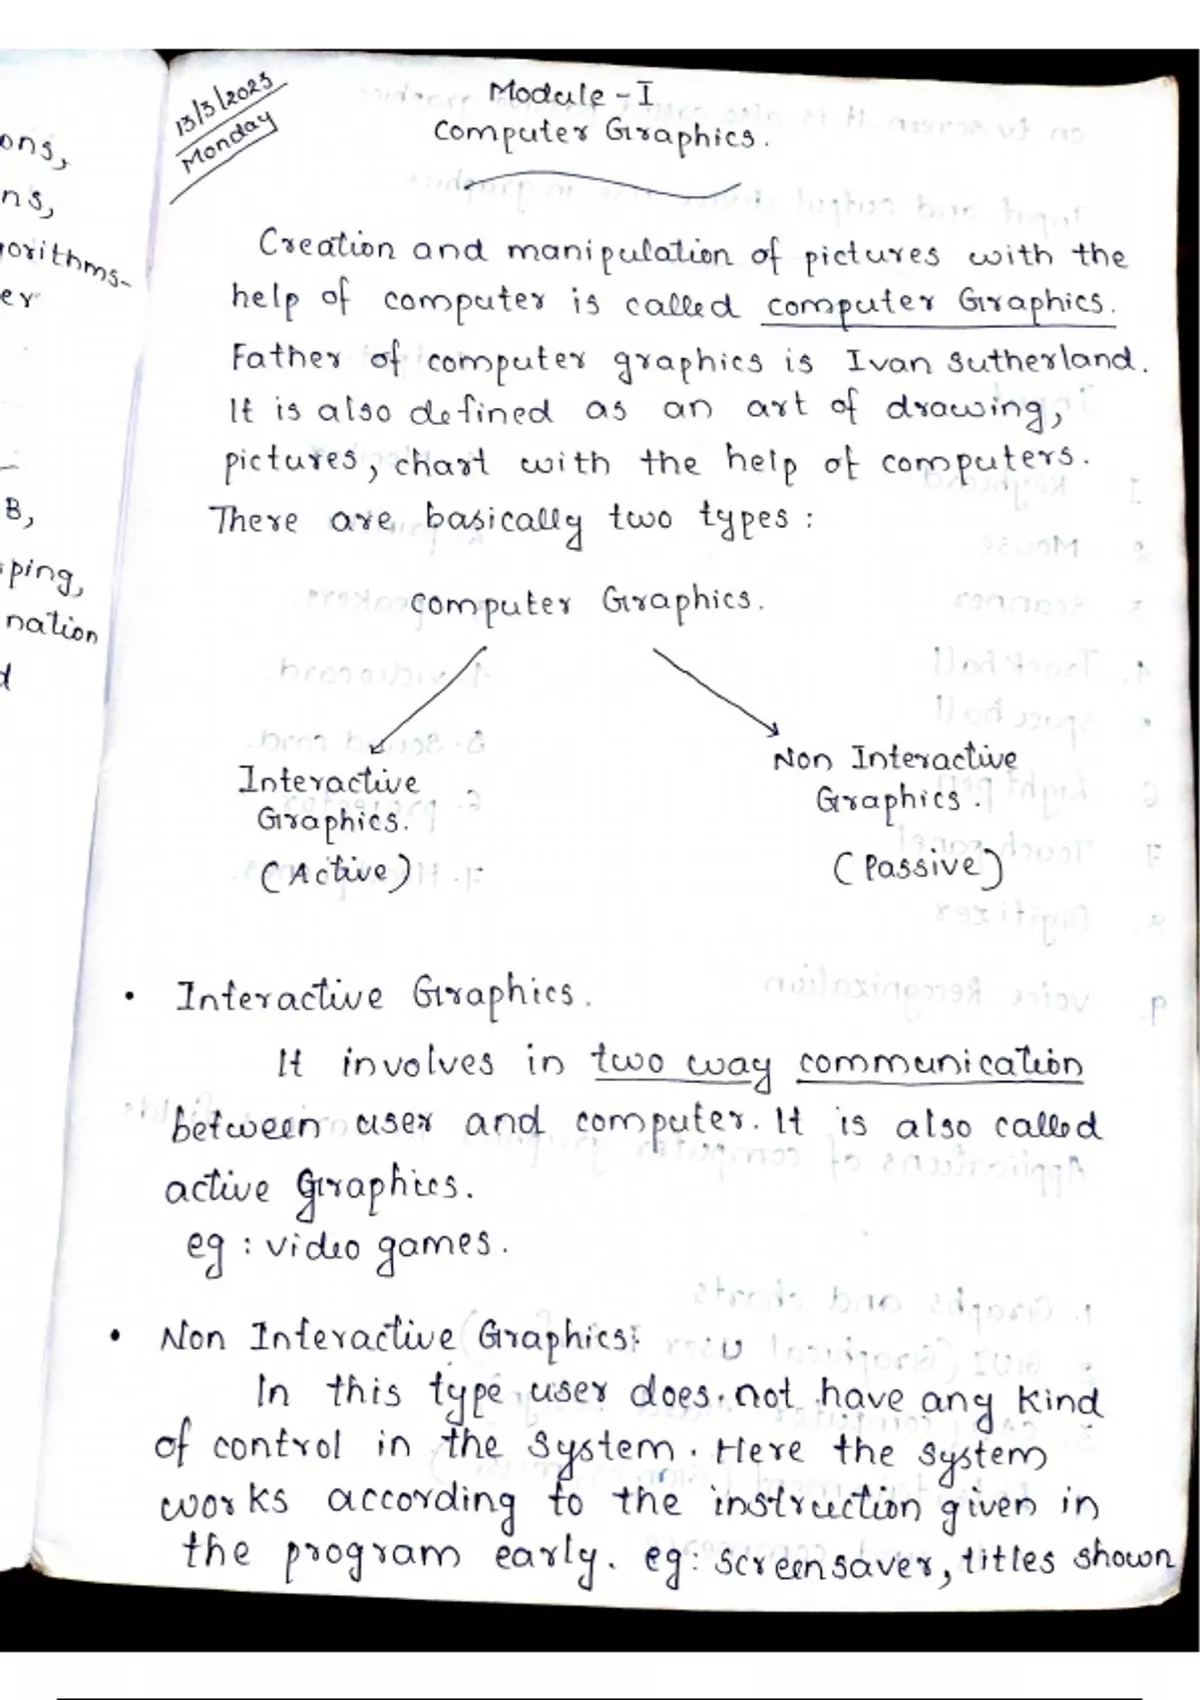 ons,
ns,
gorithms-
er
B,
ping,
nation
d
13/3/2023
Monday
Module - I
Computer Graphics.
Creation and manipulation of pictures with the
help of computer is called computer Graphics.
Father of computer graphics is Ivan Sutherland.
It is also defined as an art of drawing,
pictures, chart with the help of computers.
There are basically two types :
Computer Graphics.
Interactive
Graphics.
(Active)
Non Interactive
Graphics.
(Passive)
• Interactive Graphics.
It involves in two way communication
between user and computer. It is also called
active Graphics.
eg : video games.
• Non Interactive Graphics:
In this type user does not have any kind
of control in the system. Here the system
works according to the instruction given in
the program early. eg: screensaver, titles shown